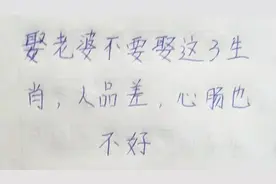 娶老婆不要娶这3生
肖，人品差，心肠也
不好